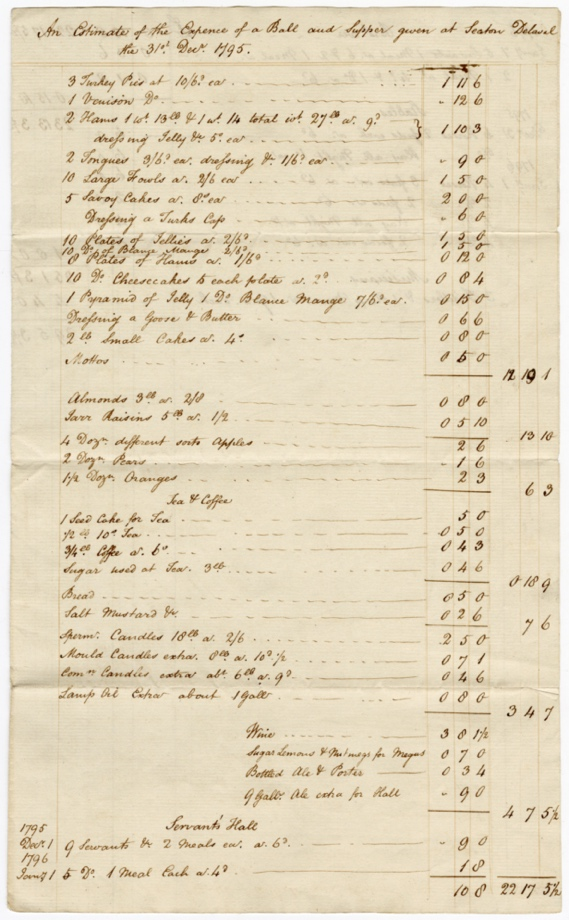 An Estimate of the Expence of a Ball and Supper given at Seaton Delavel
the 31st Decr. 1795.
3 Turkey Pies at 10/6d ea 1 11 6
1 Venison Do. " 12 6
2 Hams 1 wt. 13lb & 1 wt. 14 total wt. 27lb a. 9d
dressing Jelly &c 5/ ea } 1 10 3
2 Tongues 3/6d ea. dressing &c 1/6d ea " 9 0
10 Large Fowls a. 2/6 ea 1 5 0
5 Savoy Cakes a. 8/ ea 2 0 0
Dressing a Turks Cap " 6 0
10 Plates of Jellies a. 2/6d 1 5 0
10 Do. of Blance Mange 2/6d 1 5 0
8 Plates of Hams a. 1/6d 0 12 0
10 Do. Cheesecakes to each plate a. 2d 0 8 4
1 Pyramid of Jelly 1 Do. Blance Mange 7/6d ea. 0 15 0
Dressing a Goose & Butter 0 6 6
2 lb Small Cakes a. 4/ 0 8 0
Mottos 0 5 0
12 19 1
Almonds 3lb a. 2/8 0 8 0
Jarr Raisins 5lb a. 1/2 0 5 10
13 10
4 Dozn. different sorts Apples " 2 6
2 Dozn. Pears " 1 6
1 1/2 Dozn. Oranges 2 3
6 3
Tea & Coffee
1 Seed Cake for Tea 5 0
1/2 lb 10/ Tea 0 5 0
3/4 lb Coffee a. 6/ 0 4 3
Sugar used at Tea. 3lb 0 4 6
0 18 9
Bread 0 5 0
Salt Mustard &c. 0 2 6
7 6
Sperm. Candles 18lb a. 2/6 2 5 0
Mould Candles extra. 8lb a. 10d 1/2 0 7 1
Comn. Candles extra abt. 6lb a. 9d 0 4 6
Lamp Oil Extra about 1 Galln. 0 8 0
3 4 7
Wine 3 8 1 1/2
Sugar Lemons & Nutmegs for Negus 0 7 0
Bottled Ale & Porter 0 3 4
9 Galls. Ale extra for Hall " 9 0
4 7 5 1/2
Servants Hall
1795
Decr. 1 9 Servants &c 2 Meals ea. a. 6d " 9 0
1796
Janry 1 5 Do. 1 Meal Each a. 4d 1 8
10 8 22 17 5 1/2